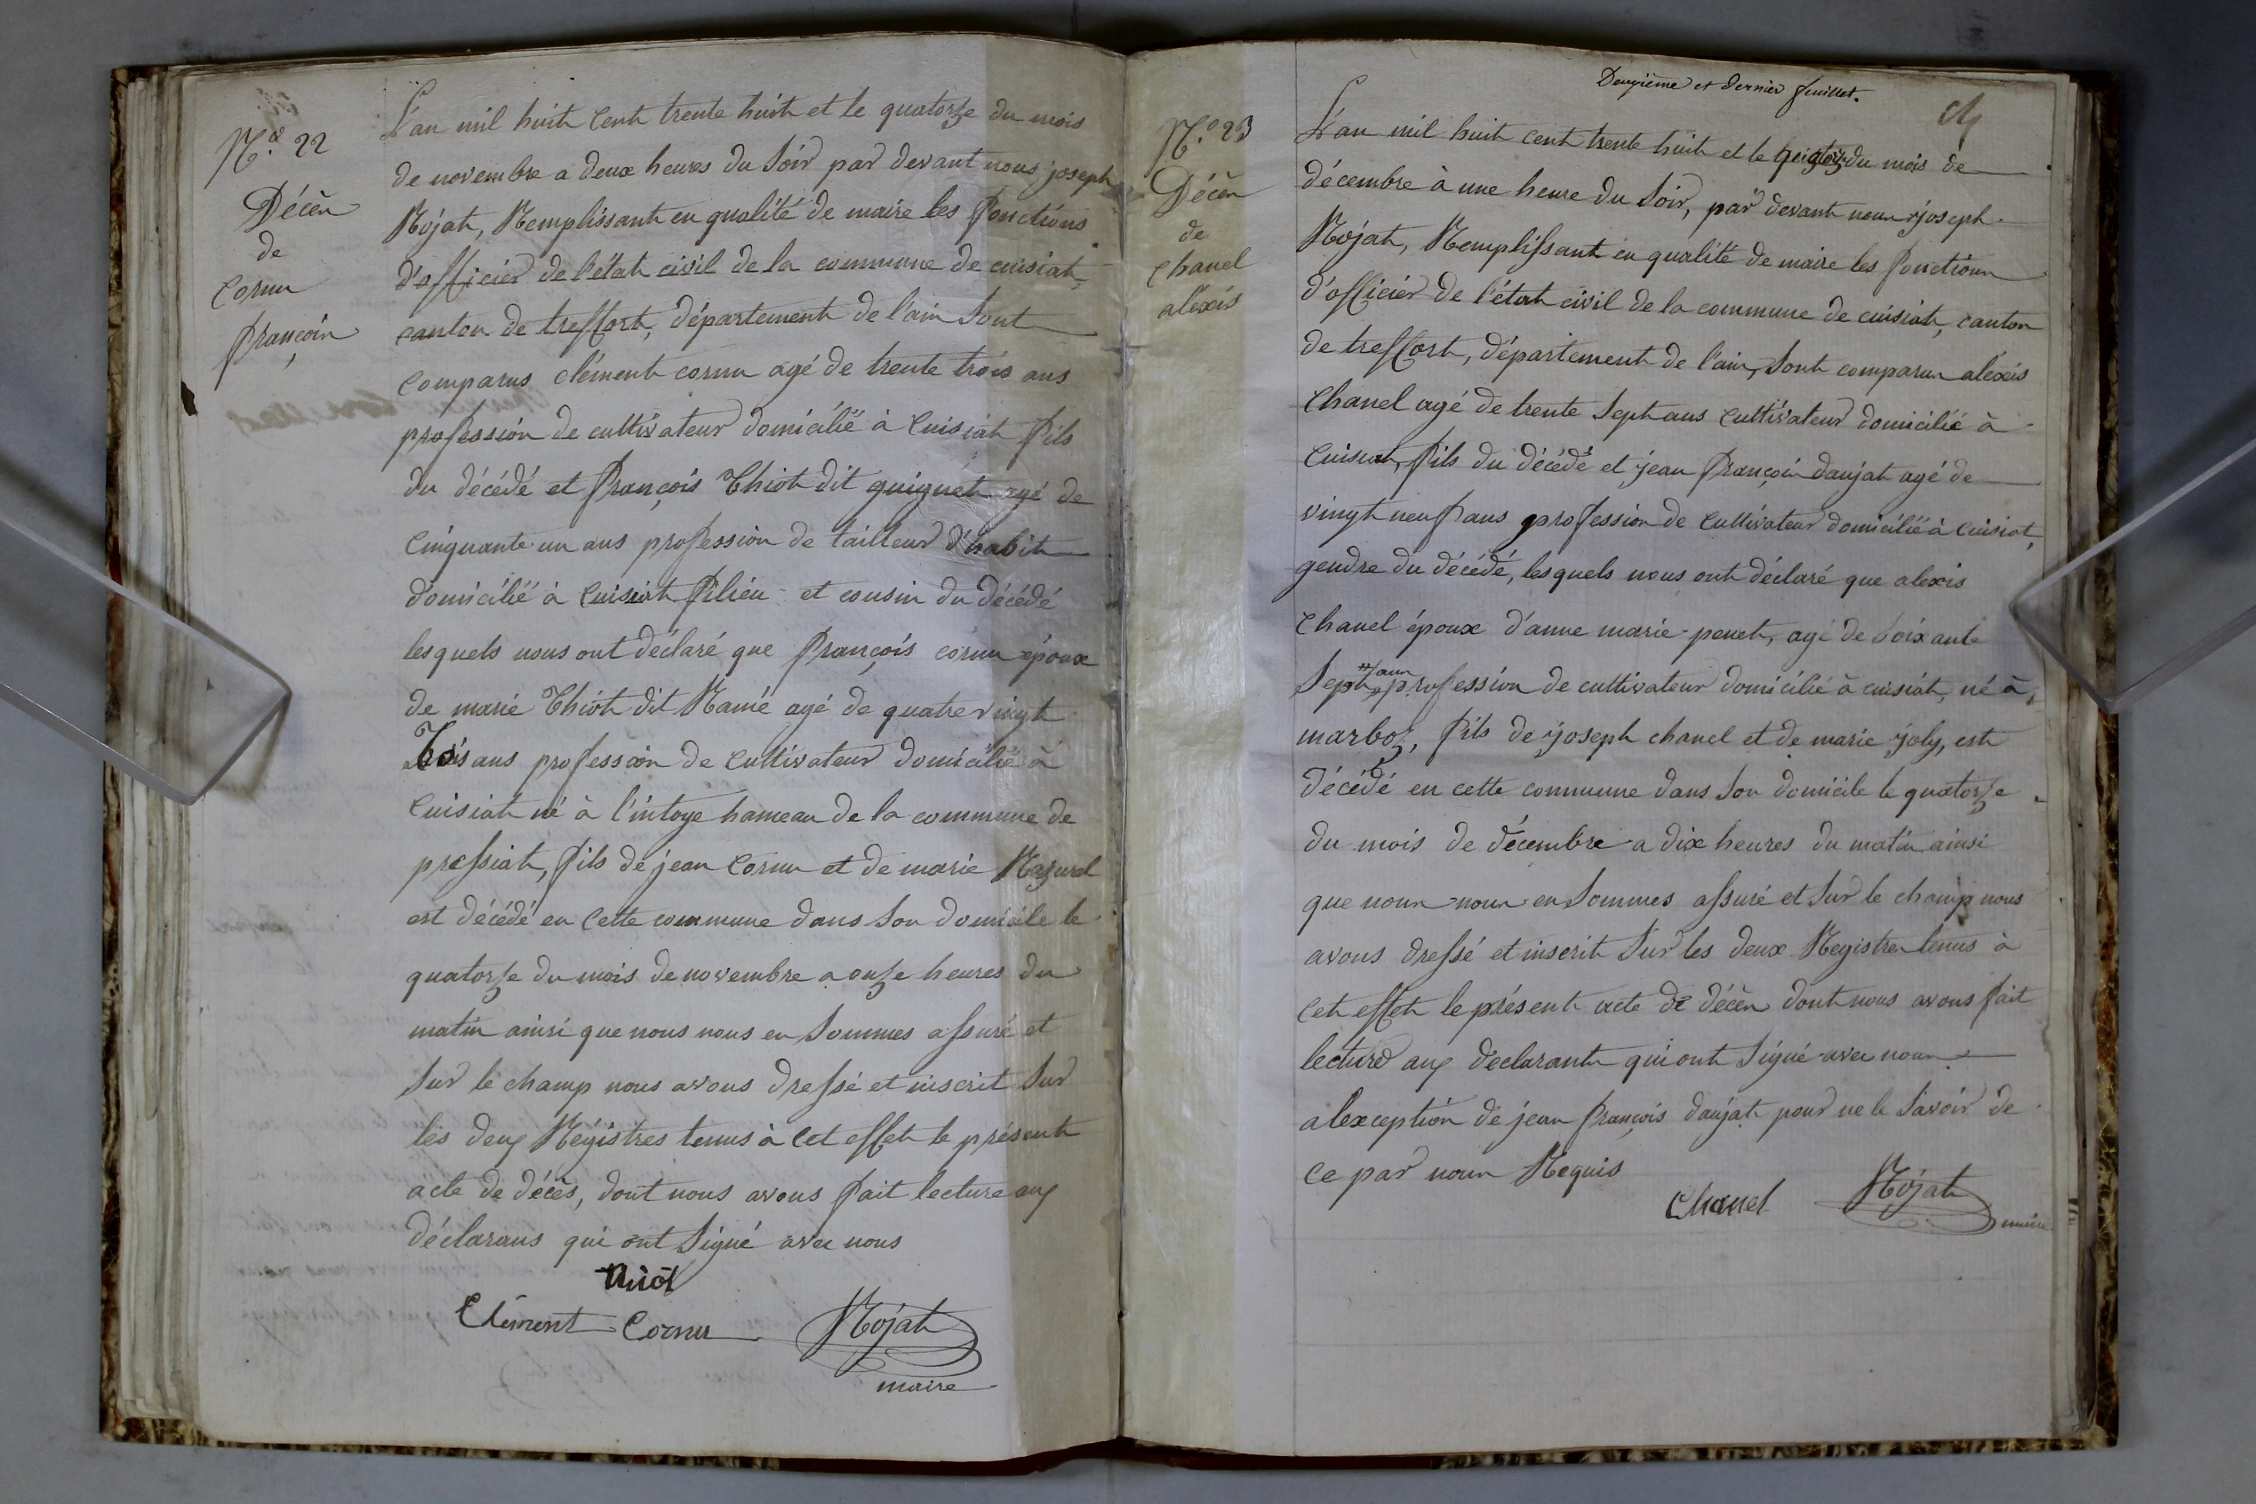 N.o 22
Décès
de
Cornu
françois
L'an mil huit cent trente huit et le quatorze du mois
de novembre a deux heures du soir par devant nous joseph
Rojat, Remplissant en qualité de maire les fonctions
d'officier de l'état civil de la commune de cuisiat,
canton de treffort, département de l'ain sont
comparus clément cornu agé de trente trois ans
profession de cultivateur domicilié à Cuisiat fils
du décédé et françois Thiot dit guignét agé de
cinquante un ans profession de tailleur d'habit
domicilié à Cuisiat filieu et cousin du décédé
lesquels nous ont déclaré que françois cornu époux
de marie Thiot dit Ramé agé de quatre vingt
Trois ans profession de cultivateur domicilié à
Cuisiat né à l'intoye hameau de la commune de
pressiat, fils de jean Cornu et de marie Mazurel
est décédé en cette commune dans son domicile le
quatorze du mois de novembre a onze heures du
matin ainsi que nous nous en sommes assuré et
sur le champ nous avons dressé et inscrit sur
les deux Régistres tenus à cet effet le présent
acte de décès, dont nous avons fait lecture aux
déclarans qui ont signé avec nous
Thiôt
Clément Cornu Rojat
maire
Deuxième et dernier feuillet.
N.o 23
Décès
de
chanel
aléxis
L'an mil huit cent trente huit et le quatorze du mois de
décembre à une heure du soir, par devant nous joseph
Rojat, Remplissant en qualité de maire les fonctions
d'officier de l'état civil de la commune de cuisiat, canton
de treffort, département de l'ain, sont comparus aléxis
Chanel agé de trente sept ans cultivateur domicilié à
Cuisiat, fils du décédé et jean françois daujat agé de
vingt neuf ans profession de cultivateur domicilié à cuisiat,
gendre du décédé, lesquels nous ont déclaré que alexis
Chanel époux d'anne marie penet, agé de soixante
Sept ans profession de cultivateur domicilié à cuisiat, né à
marboz, fils de joseph chanel et de marie joly, est
décédé en cette commune dans son domicile le quatorze
du mois de décembre a dix heures du matin ainsi
que nous nous en sommes assuré et sur le champ nous
avons dressé et inscrit sur les deux Registres tenus à
cet effet le présent acte de décès dont nous avons fait
lecture aux declarants qui ont signé avec nous
alexception de jean françois daujat pour ne le savoir de
ce par nous Requis
Chanel Rojat
maire